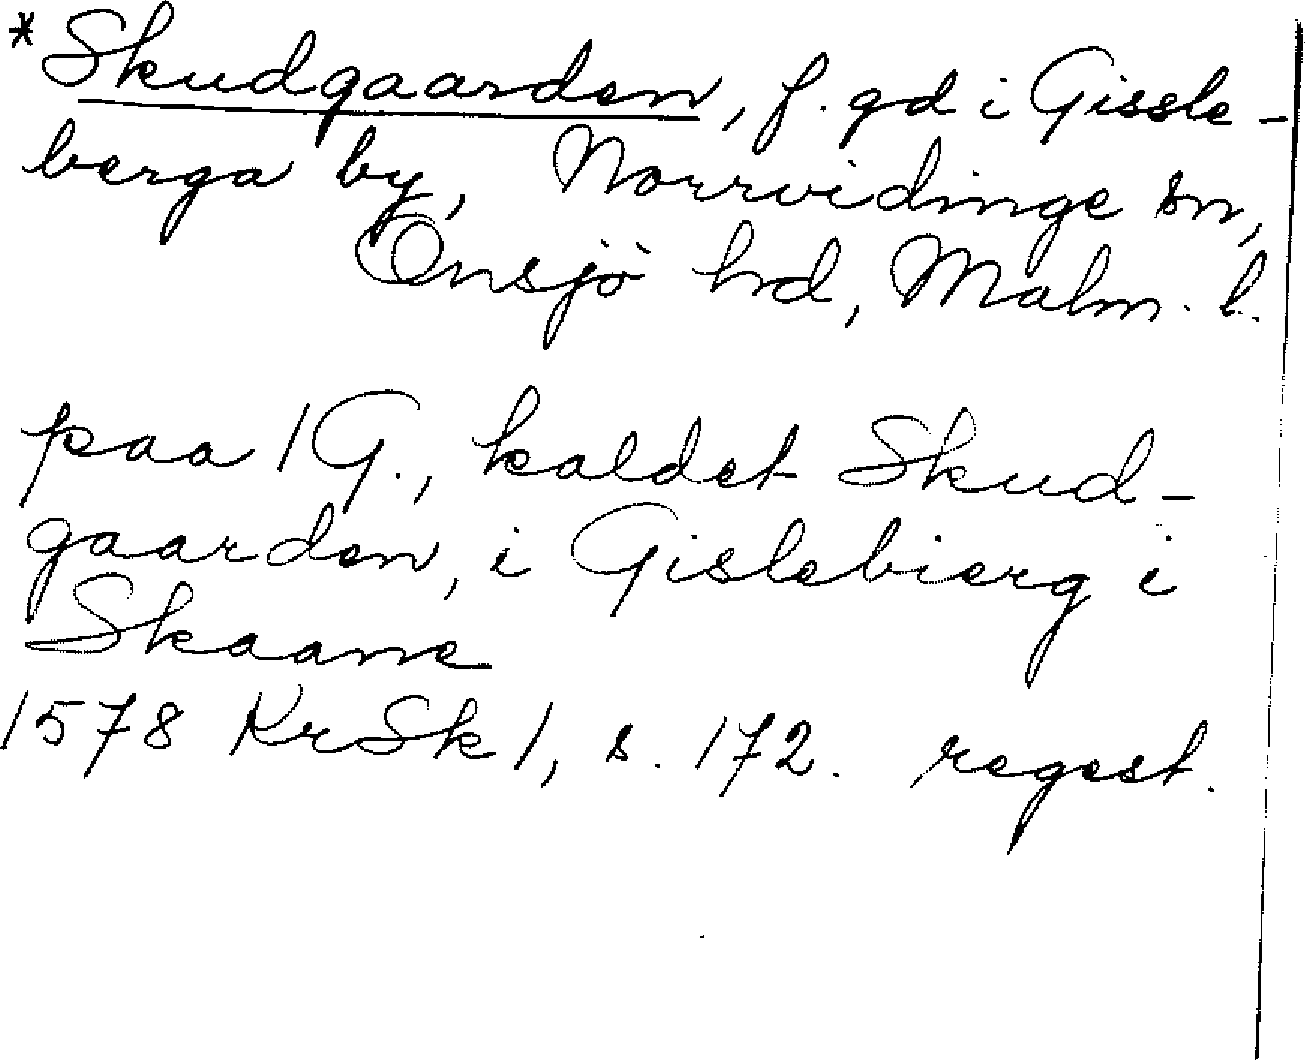 *Skudgaarden, f. gd i Gissle-
berga by, Norrvidinge sn,
Onsjö hd, Malm. l.
paa 1 G., kaldet Skud-
gaarden, i Gislebierg i
Skaane
1578 KrSk 1, s. 172. regest.